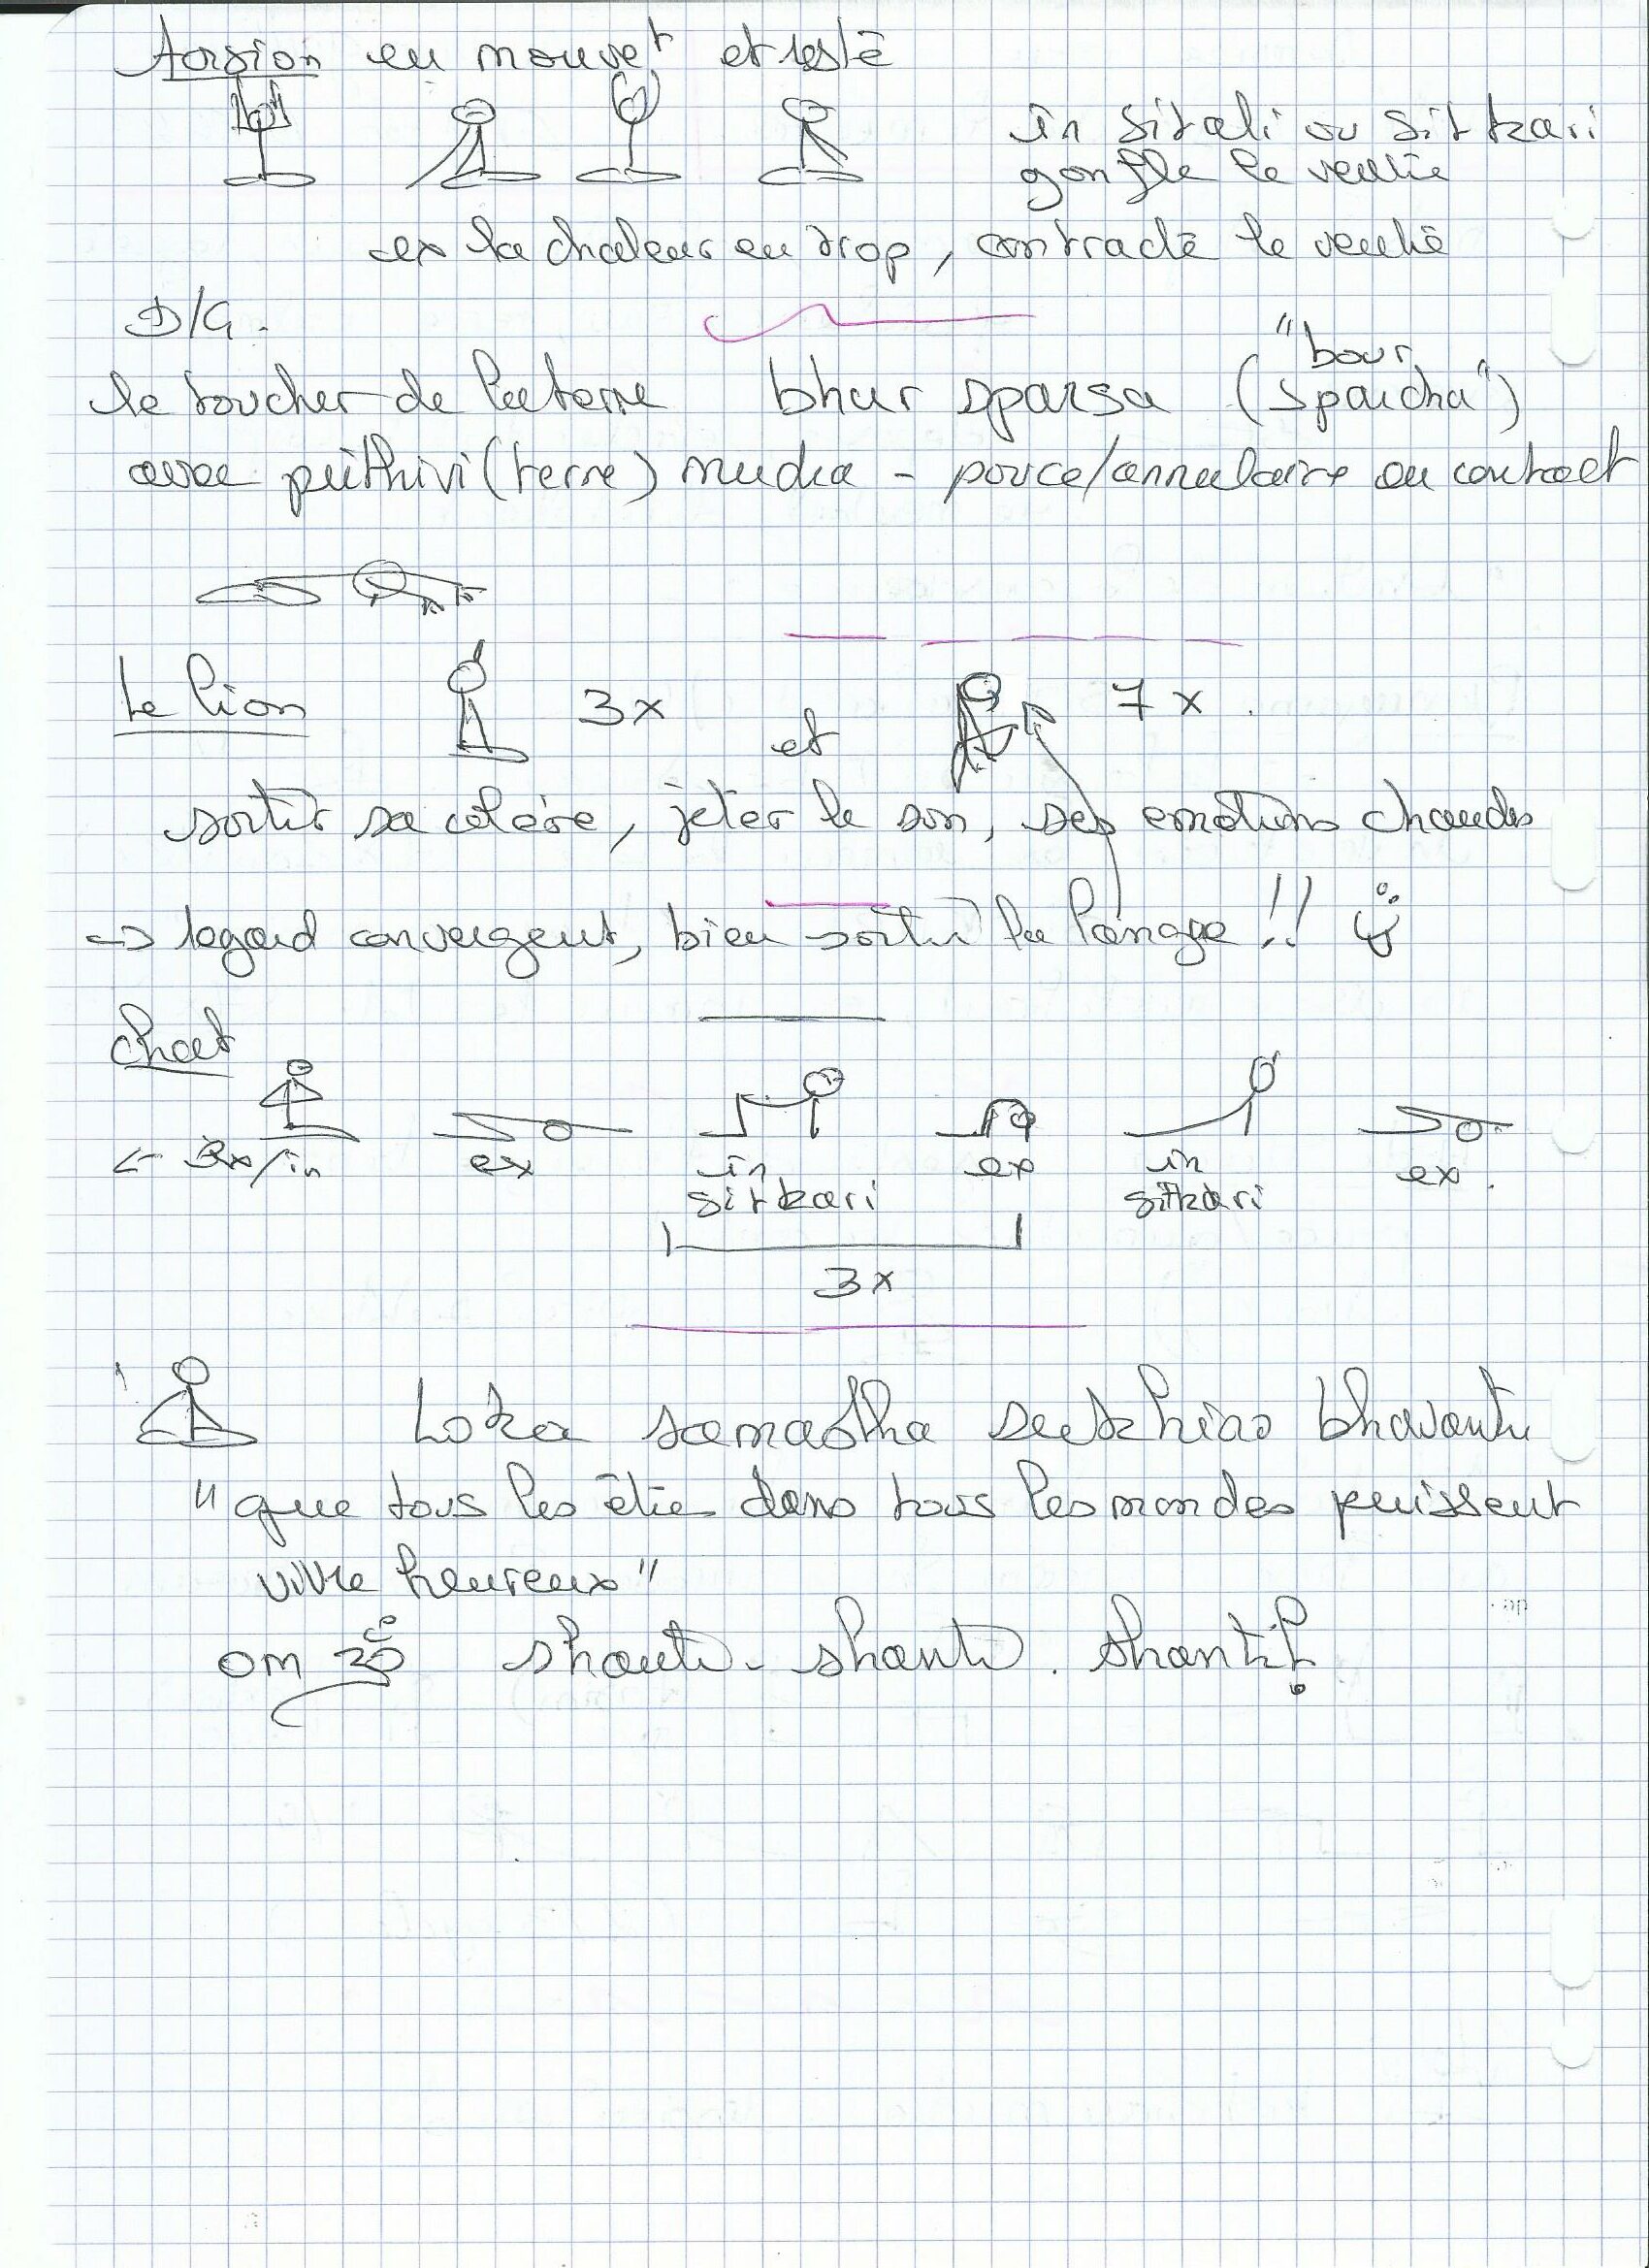 Torsion en mouvet et reste
in sitali ou sitkari
gonfle le ventre
ex la chaleur en trop, contracte le ventre
D/G.
le toucher de la terre bhur sparsa ("bour sparcha")
avec prithivi (terre) mudra - pouce/annulaire en contact
Le lion 3x et 7x.
sortir sa colère, jeter le son, ses emotions chaudes
→ regard convergent, bien sortir la langue !!
Chat
← ex/in ex in ex in ex.
sitkari sitkari
3x
Loka samastha sukhino bhavantu
"que tous les être dans tous les mondes puissent
vivre heureux"
om ॐ shanti - shanti . shanti!